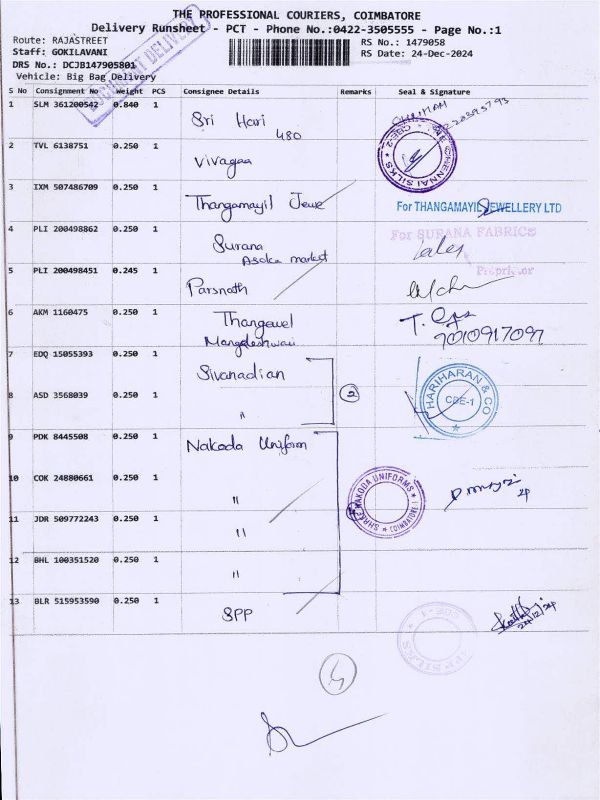 THE PROFESSIONAL COURIERS, COIMBATORE
Delivery Runsheet - PCT - Phone No.:0422-3505555 - Page No.:1
Route: RAJASTREET
RS No.: 1479058
Staff: GOKILAVANI
RS Date: 24-Dec-2024
DRS No.: DCJB147905801
Vehicle: Big Bag Delivery
DELIVERY
S No Consignment No Weight PCS Consignee Details Remarks Seal & Signature
1 SLM 361200542 0.840 1 Sri Hari 480
CHENNAI SILKS CBE-2
2 TVL 6138751 0.250 1 Vivagaa
3 IXM 507486709 0.250 1 Thangamayil Jewe For THANGAMAYIL JEWELLERY LTD
4 PLI 200498862 0.250 1 Surana Asoka market For SURANA FABRICS
Proprietor
5 PLI 200498451 0.245 1 Parsnath
6 AKM 1160475 0.250 1 Thangavel Mangaleshwari T.
7010917097
7 EDQ 15055393 0.250 1 Sivanadian
HARIHARAN & CO CBE-1
8 ASD 3568039 0.250 1 " 2
9 PDK 8445508 0.250 1 Nakoda Uniform
10 COK 24880661 0.250 1 "
SHREE NAKODA UNIFORMS COIMBATORE
11 JDR 509772243 0.250 1 "
12 BHL 100351520 0.250 1 "
13 BLR 515953590 0.250 1 SPP
24/12/24
CBE-1
SILKS